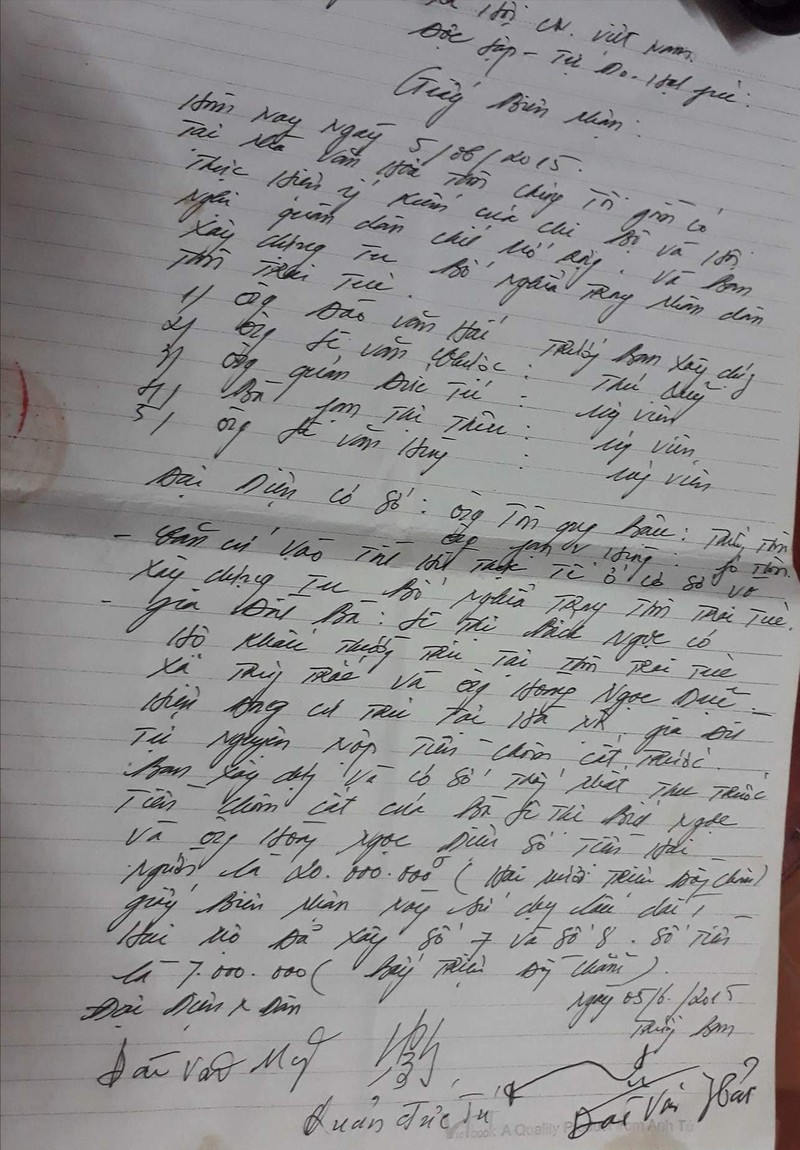 Xã Hội CN. Việt Nam.
Độc Lập - Tự Do - Hạnh phúc:
Giấy Biên Nhận:
Hôm nay ngày 5/06/2015.
Tại nhà Văn Hóa Thôn chúng Tôi gồm có
Thực Hiện ý kiến của chi Bộ và Hội
Nghị quân dân chính mở rộng. và Ban
Xây dựng Tu Bổ nghĩa Trang nhân dân
Thôn Trại Tuê.
1/ ông Đào Văn Hải Trưởng Ban Xây dựng
2/ ông Lê Văn : Thủ Quỹ
3/ ông quản Đức Tú : uỷ viên
4/ Bà Thị Thêu : uỷ viên
5/ ông Lê Văn Hùng : uỷ viên
Đại Diện cơ sở: ông Tôn quy Bâu: Thôn
ông
- Căn cứ vào Tình Hình Thực Tế ở cơ sở về
Xây dựng Tu Bổ nghĩa Trang Thôn Trại Tuê.
- gia Đình Bà: Lê Thị Bích Ngọc có
Hộ khẩu Thường Trú Tại Thôn Trại Tuê
Xã và ông Hoàng Ngọc
Hiện đang cư Trú Tại Hà Nội, gia Đình
Tự nguyện nộp Tiền chôn cất Trước.
Ban Xây dựng và cơ sở Thống nhất Thu Trước
Tiền chôn cất của Bà Lê Thị Bích Ngọc
và ông Hoàng Ngọc số Tiền Hai
người là 20.000.000đ (Hai mươi Triệu đồng chẵn)
giấy Biên nhận này sử dụng lâu dài
Hai mộ Đã xây số 7 và số 8. số Tiền
là 7.000.000 (Bảy Triệu đồng chẵn).
Đại Diện Dân
ngày 05/6/2015
Trưởng Ban
Quản Đức Tú
Đào Văn Hải
A Quality Product from Anh Tú